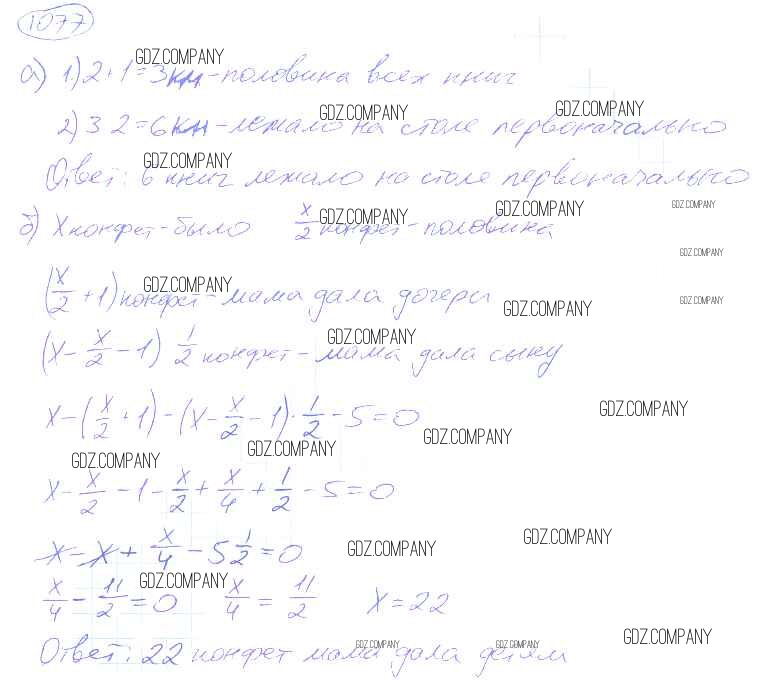 1077
GDZ.COMPANY
а) 1) 2+1=3кн-половина всех книг
GDZ.COMPANY GDZ.COMPANY
2) 3 2=6кн-лежало на столе первоначально
GDZ.COMPANY
Ответ: 6 книг лежало на столе первоначально
GDZ.COMPANY GDZ.COMPANY GDZ.COMPANY
б) X конфет-было x/2 конфет-половина
GDZ.COMPANY
GDZ.COMPANY
(x/2 +1) конфет-мама дала дочери
GDZ.COMPANY GDZ.COMPANY
GDZ.COMPANY
(x- x/2 -1) 1/2 конфет-мама дала сыну
GDZ.COMPANY
x-(x/2 +1)-(x- x/2 -1)· 1/2 -5=0
GDZ.COMPANY
GDZ.COMPANY GDZ.COMPANY
x- x/2 -1- x/2 + x/4 + 1/2 -5=0
GDZ.COMPANY
x-x+ x/4 -5 1/2 =0
GDZ.COMPANY
GDZ.COMPANY
x/4 - 11/2 =0 x/4 = 11/2 X=22
GDZ.COMPANY GDZ.COMPANY GDZ.COMPANY
Ответ: 22 конфет мама дала детям